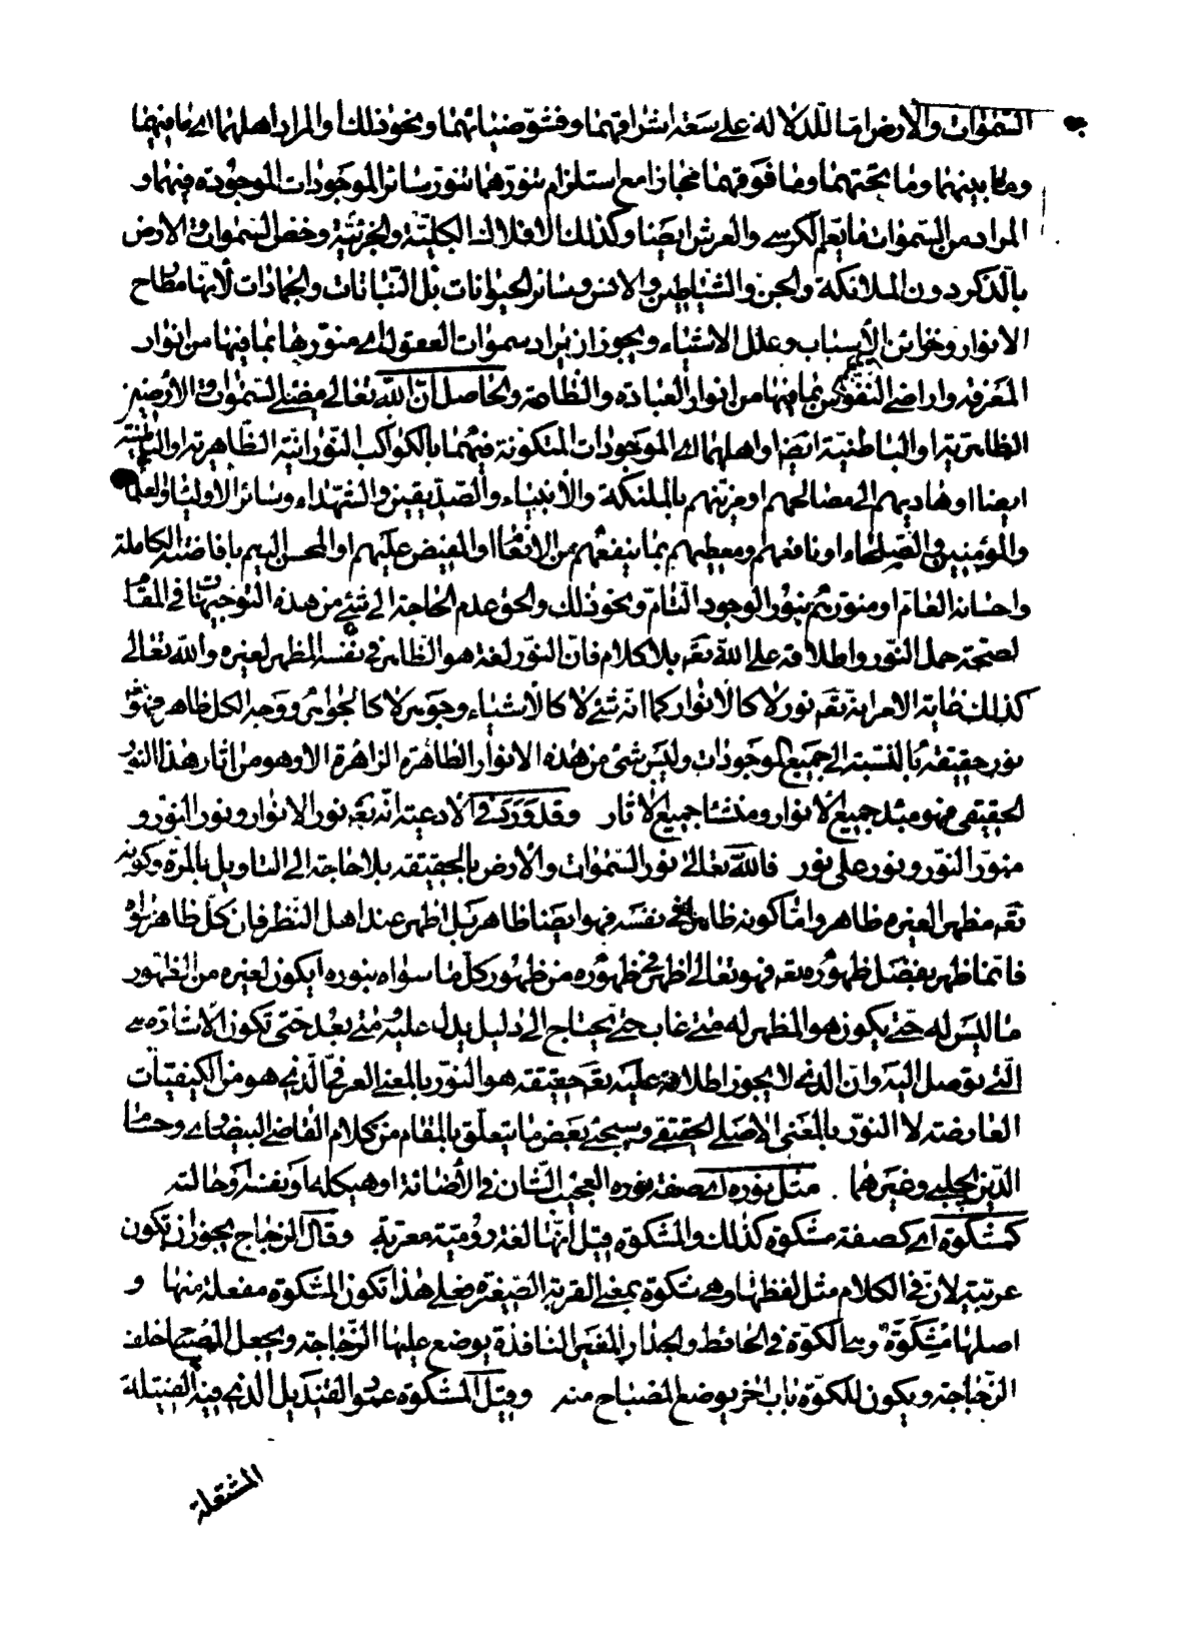 السّمٰوات والأرض امّا للدلالة على سعة اشراقهما وفشوّ ضيائهما ونحو ذلك او المراد اهلهما اى ما فيهما
وما بينهما وما تحتهما وما فوقهما مجازا مع استلزام تنورهما تنور سائر الموجودات الموجودة فيهما و
المراد من السّموات ما يعم الكرسى والعرش ايضا وكذلك الافلاك الكليّة والجزئيّة وخصّ السّموات والارض
بالذكر دون الملائكة والجن والشياطين والانس وسائر الحيوانات بل النّباتات والجمادات لأنهّا مطارح
الانوار وخزائن الأسباب وعلل الاشياء ويجوز ان يراد سموات العقول اى منوّرها بما فيها من انوار
المعرفة واراضى النّفوس بما فيها من انوار العبادة والطّاعة والحاصل انّ اللّه تعالى مضئ السّموات والأرضين
الظاهريّة او الباطنيّة ايضا او اهلهما اى الموجودات المتكونة فيهما بالكواكب النّورانيّة الظّاهرية او الباطنيّة
ايضا او هاديهم الى مصالحهم او مزيّنهم بالملئكة والأنبياء والصّديقين والشّهداء وسائر الاولياء والعلماء
والمؤمنين والصّلحاء او نافعهم ومعطيهم بما ينفعهم من الانعام او المفيض عليهم او المحسن اليهم بافاضته الكاملة
واحسانه العام او منوّرهم بنور الوجود التّام ونحو ذلك والحق عدم الحاجة الى شئ من هذه التوجيهات فى المقام
لصحّة حمل النّور واطلاقه على اللّه تعه بلا كلام فانّ النّور لغة هو الظّاهر فى نفسه المظهر لغيره واللّه تعالى
كذلك غاية الامر انّه تعه نور لا كالأنوار كما انّه شئ لا كالأشياء وجوهر لا كالجواهر ووجه الكل ظاهر فهو
نور حقيقة بالنّسبة الى جميع الموجودات وليس شئ من هذه الانوار الطّاهرة الزاهرة الا وهو من اثار هذا النّور
الحقيقى فهو مبدء جميع الأنوار ومنشأ جميع الأثار وقد ورد فى الأدعية انّه تعه نور الانوار ونور النّور و
منوّر النّور ونور على نور فاللّه تعالى نور السّموات والأرض بالحقيقة بلا حاجة الى التاويل بالمرة وكونه
تعه مظهرا لغيره ظاهر وامّا كونه ظاهرا فى نفسه فهو ايضا ظاهر بل اظهر عند اهل النّظر فان كلّ ظاهر سواه
فانّما ظهر بفضل ظهوره تعه فهو تعالى اظهر فى ظهوره من ظهور كلّ ما سواه بنوره ايكون لغيره من الظهور
ما ليس له حتى يكون هو المظهر له متى غاب حتى يحتاج الى دليل يدل عليه متى بعد حتى تكون الأشارة هى
الّتى توصل اليه وان الذى لا يجوز اطلاقه عليه تعه حقيقة هو النّور بالمعنى العرفىّ الّذى هو من الكيفيّات
العارضة لا النّور بالمعنى الأصلى الحقيقى وسيجئ بعض ما يتعلّق بالمقام من كلام القاضى البيضاوى وحسام
الدّين الچلبى وغيرهما . مثل نوره اى صفة نوره العجيب الشّان فى الأضائة او هيكله او نفسه او حالته
كمشكوة اى كصفة مشكوة كذلك والمشكوة قيل انّها لغة روميّة معربة وقال الزجاج يجوز ان تكون
عربيّة لانّ فى الكلام مثل لفظها وهى شكوة بمعنى القربة الصّغيرة فعلى هذا تكون المشكوة مفعلة منها و
اصلها مشكوة وهى الكوّة فى الحائط والجدار الغير النافذة يوضع عليها الزّجاجة ويجعل المصباح خلف
الزّجاجة ويكون للكوّة باب اخر يوضع المصباح منه وقيل المشكوة عمود القنديل الذى فيه الفتيلة
المشتعلة